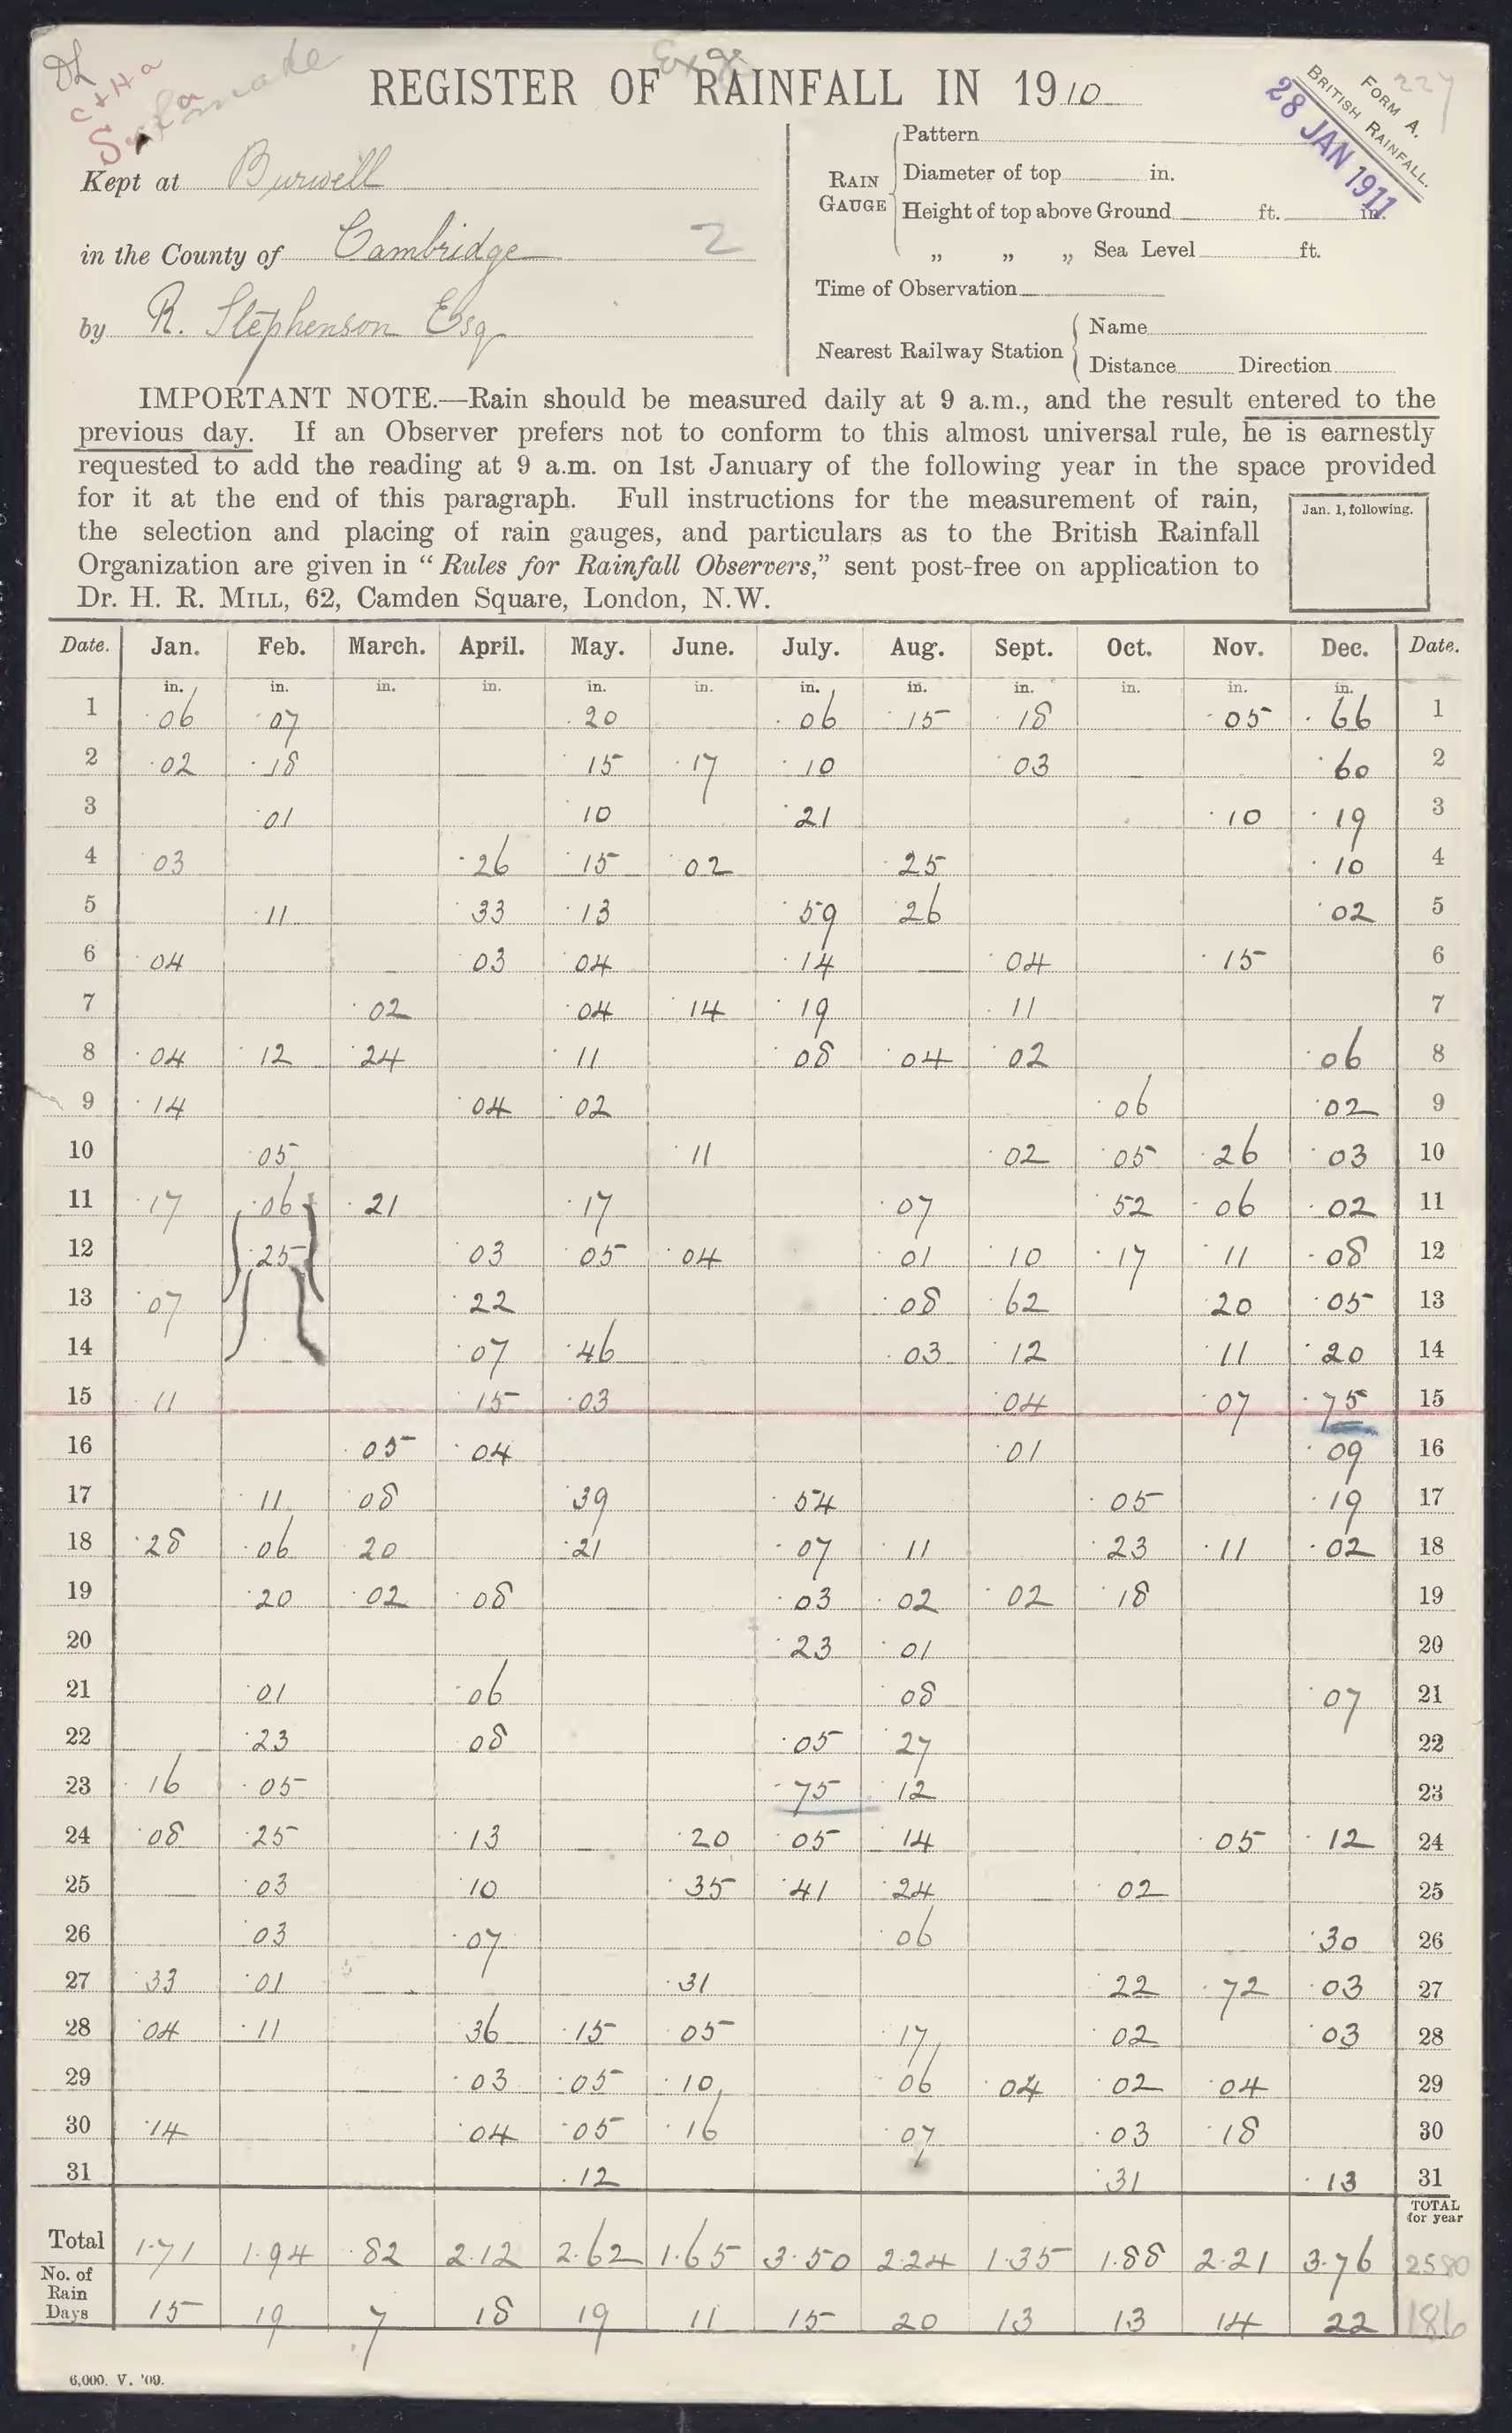 REGISTER OF RAINFALL IN 1910
FORM A.
BRITISH RAINFALL.
28 JAN 1911
227
Kept at Burwell
in the County of Cambridge 2
by R. Stephenson Esq
RAIN GAUGE
Pattern
Diameter of top in.
Height of top above Ground ft. in.
„ „ „ Sea Level ft.
Time of Observation
Nearest Railway Station
Name
Distance Direction
IMPORTANT NOTE.—Rain should be measured daily at 9 a.m., and the result entered to the
previous day. If an Observer prefers not to conform to this almost universal rule, he is earnestly
requested to add the reading at 9 a.m. on 1st January of the following year in the space provided
for it at the end of this paragraph. Full instructions for the measurement of rain,
the selection and placing of rain gauges, and particulars as to the British Rainfall
Organization are given in "Rules for Rainfall Observers," sent post-free on application to
Dr. H. R. MILL, 62, Camden Square, London, N.W.
Jan. 1, following.
Date. Jan. Feb. March. April. May. June. July. Aug. Sept. Oct. Nov. Dec. Date.
in. in. in. in. in. in. in. in. in. in. in. in.
1 .06 .07 .20 .06 .15 .18 .05 .66 1
2 .02 .18 .15 .17 .10 .03 .60 2
3 .01 .10 .21 .10 .19 3
4 .03 .26 .15 .02 .25 .10 4
5 .11 .33 .13 .59 .26 .02 5
6 .04 .03 .04 .14 .04 .15 6
7 .02 .04 .14 .19 .11 7
8 .04 .12 .24 .11 .08 .04 .02 .06 8
9 .14 .04 .02 .06 .02 9
10 .05 .11 .02 .05 .26 .03 10
11 .17 .06 .21 .17 .07 .52 .06 .02 11
12 .25 .03 .05 .04 .01 .10 .17 .11 .08 12
13 .07 .22 .08 .62 .20 .05 13
14 .07 .46 .03 .12 .11 .20 14
15 .11 .15 .03 .04 .07 .75 15
16 .05 .04 .01 .09 16
17 .11 .08 .39 .54 .05 .19 17
18 .28 .06 .20 .21 .07 .11 .23 .11 .02 18
19 .20 .02 .08 .03 .02 .02 .18 19
20 .23 .01 20
21 .01 .06 .08 .07 21
22 .23 .08 .05 .27 22
23 .16 .05 .75 .12 23
24 .08 .25 .13 .20 .05 .14 .05 .12 24
25 .03 .10 .35 .41 .24 .02 25
26 .03 .07 .06 .30 26
27 .33 .01 .31 .22 .72 .03 27
28 .04 .11 .36 .15 .05 .17 .02 .03 28
29 .03 .05 .10 .06 .04 .02 .04 29
30 .14 .04 .05 .16 .07 .03 .18 30
31 .12 .31 .13 31
TOTAL for year
Total 1.71 1.94 .82 2.12 2.62 1.65 3.50 2.24 1.35 1.88 2.21 3.76 2580
No. of Rain Days 15 19 7 18 19 11 15 20 13 13 14 22 186
6,000. V. '09.